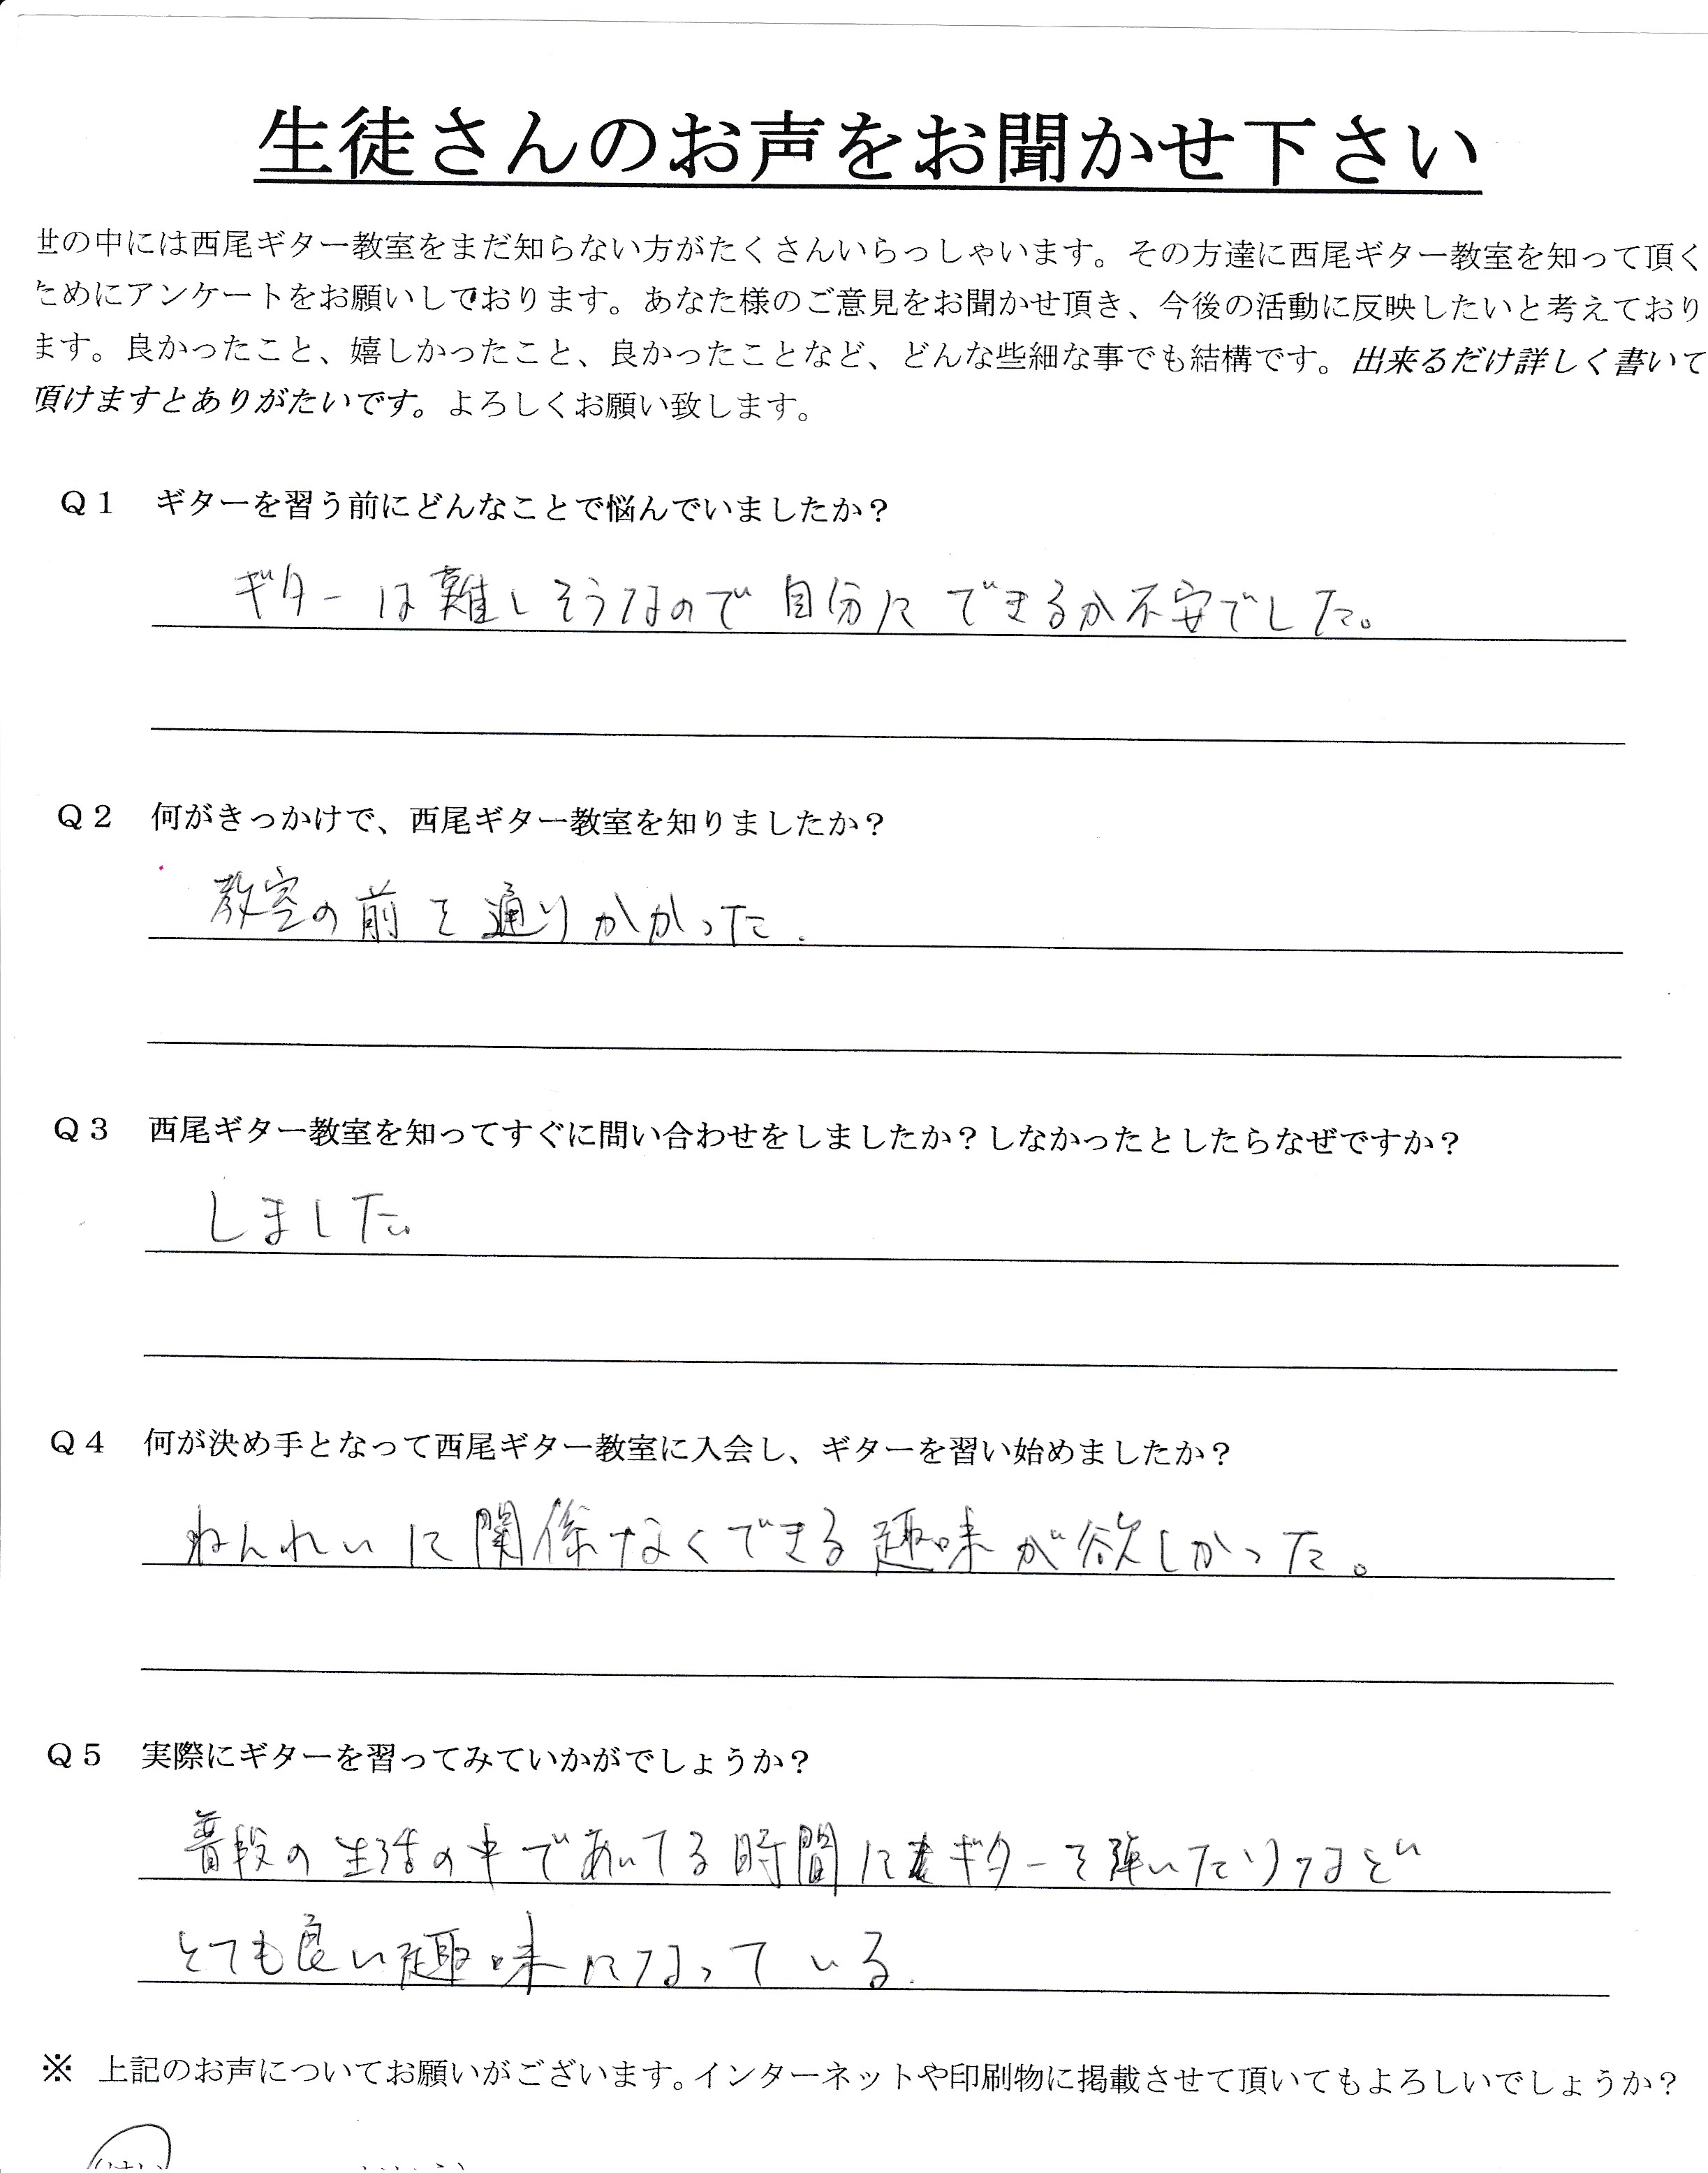 生徒さんのお声をお聞かせ下さい
世の中には西尾ギター教室をまだ知らない方がたくさんいらっしゃいます。その方達に西尾ギター教室を知って頂く
ためにアンケートをお願いしております。あなた様のご意見をお聞かせ頂き、今後の活動に反映したいと考えており
ます。良かったこと、嬉しかったこと、良かったことなど、どんな些細な事でも結構です。出来るだけ詳しく書いて
頂けますとありがたいです。よろしくお願い致します。
Q1 ギターを習う前にどんなことで悩んでいましたか？
ギターは難しそうなので自分にできるか不安でした。
Q2 何がきっかけで、西尾ギター教室を知りましたか？
教室の前を通りかかった.
Q3 西尾ギター教室を知ってすぐに問い合わせをしましたか？しなかったとしたらなぜですか？
しました。
Q4 何が決め手となって西尾ギター教室に入会し、ギターを習い始めましたか？
ねんれいに関係なくできる趣味が欲しかった。
Q5 実際にギターを習ってみていかがでしょうか？
普段の生活の中であいてる時間にギターを弾いたりなど
とても良い趣味になっている.
※ 上記のお声についてお願いがございます。インターネットや印刷物に掲載させて頂いてもよろしいでしょうか？